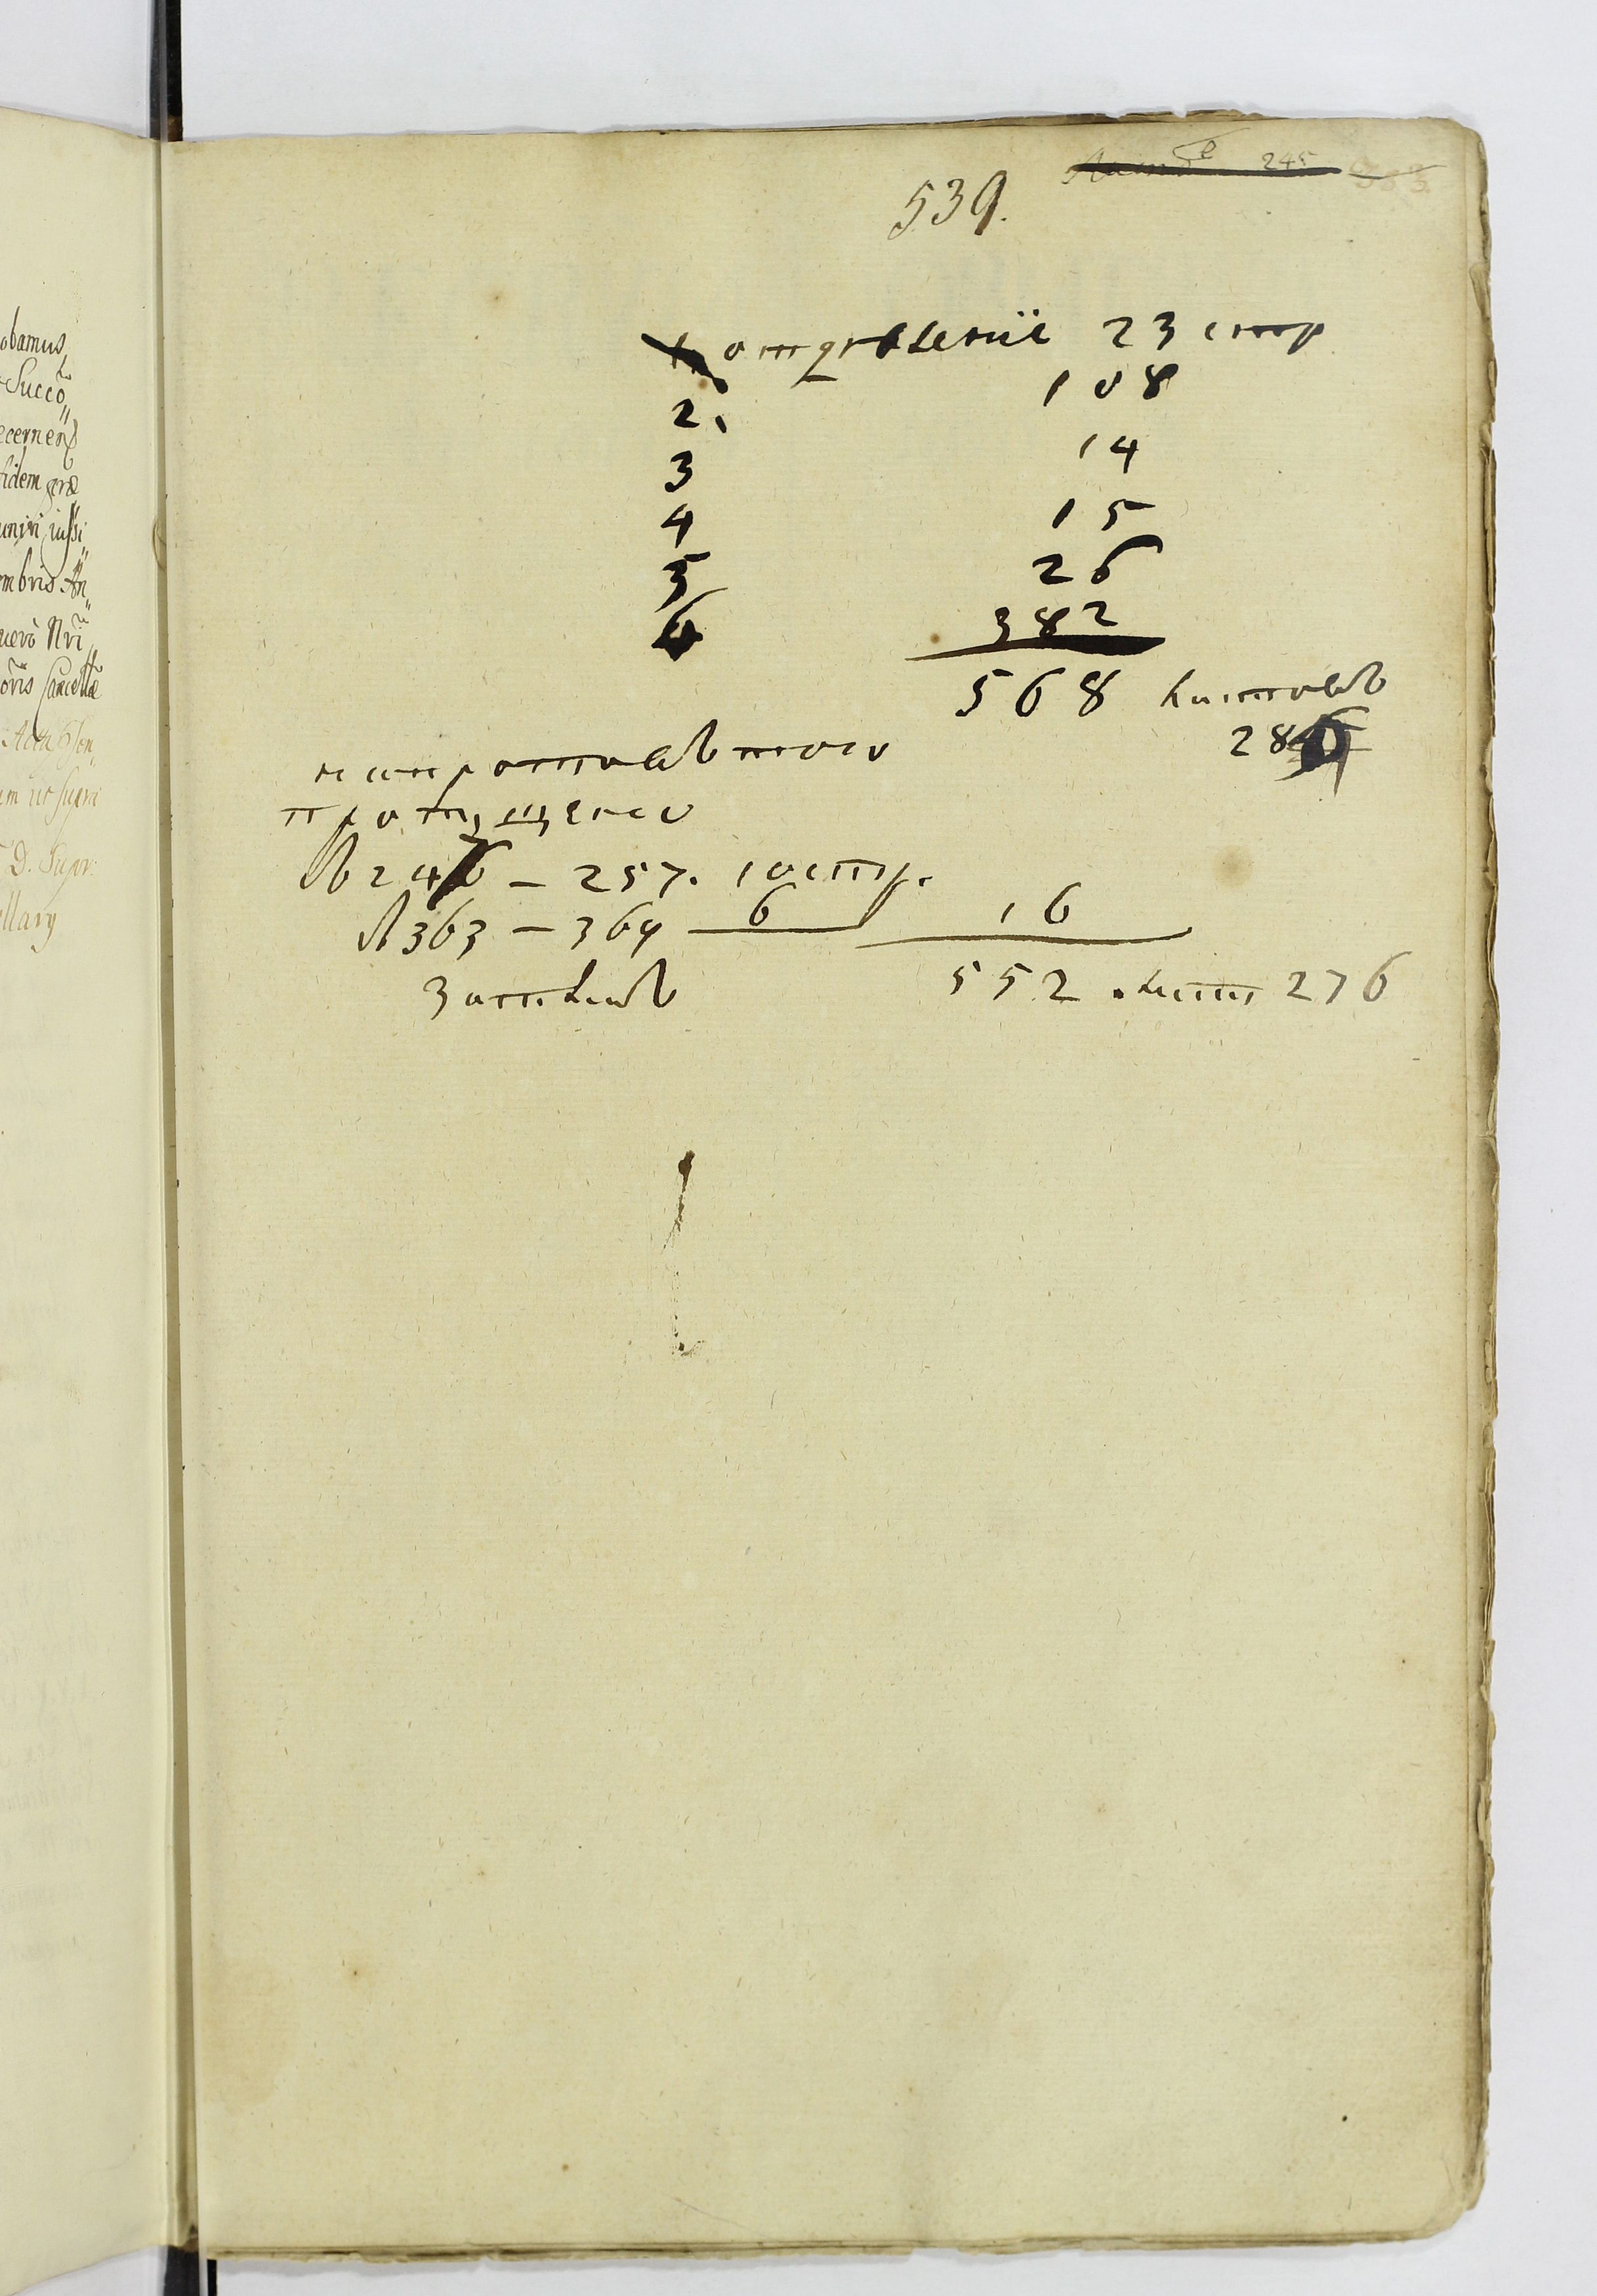 245
539.
отдѣленіе 23 стр
2. 108
3 14
4 15
5 26
6 382
568 листовъ
284
напротивъ того
пропущено
246 – 257. 10 стр.
363 – 364 6 16
затемъ 552 лист 276
obamus
Succo
ecernen
fidem
uniri iussi
mbris An
uero Nri
oris Cancellae
um ut supra
D. Supr
llary